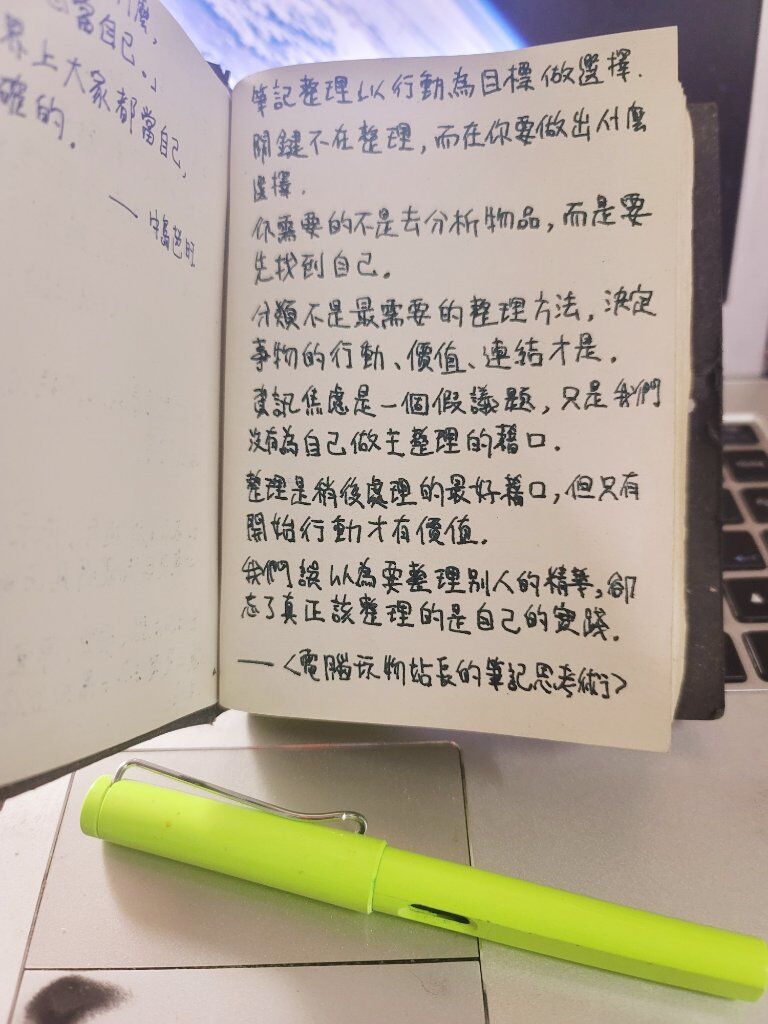 當自己。」
界上大家都當自己,
確的.
筆記整理以行動為目標做選擇.
關鍵不在整理,而在你要做出什麼
選擇.
你需要的不是去分析物品,而是要
先找到自己。
分類不是最需要的整理方法,決定
事物的行動、價值、連結才是.
資訊焦慮是一個假議題,只是我們
沒有為自己做主整理的藉口.
整理是稍後處理的最好藉口,但只有
開始行動才有價值.
我們誤以為要整理別人的精華,卻
忘了真正該整理的是自己的實踐.
—〈電腦玩物站長的筆記思考術〉